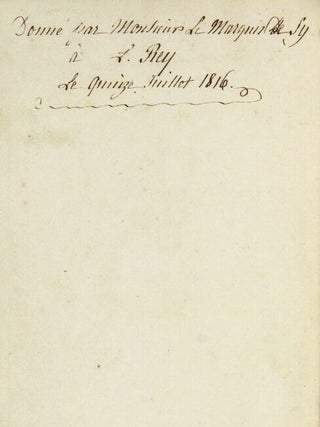 Donné par Monsieur Le Marquis de Sy
à L. Rey
Le Quinze Juillet 1816.